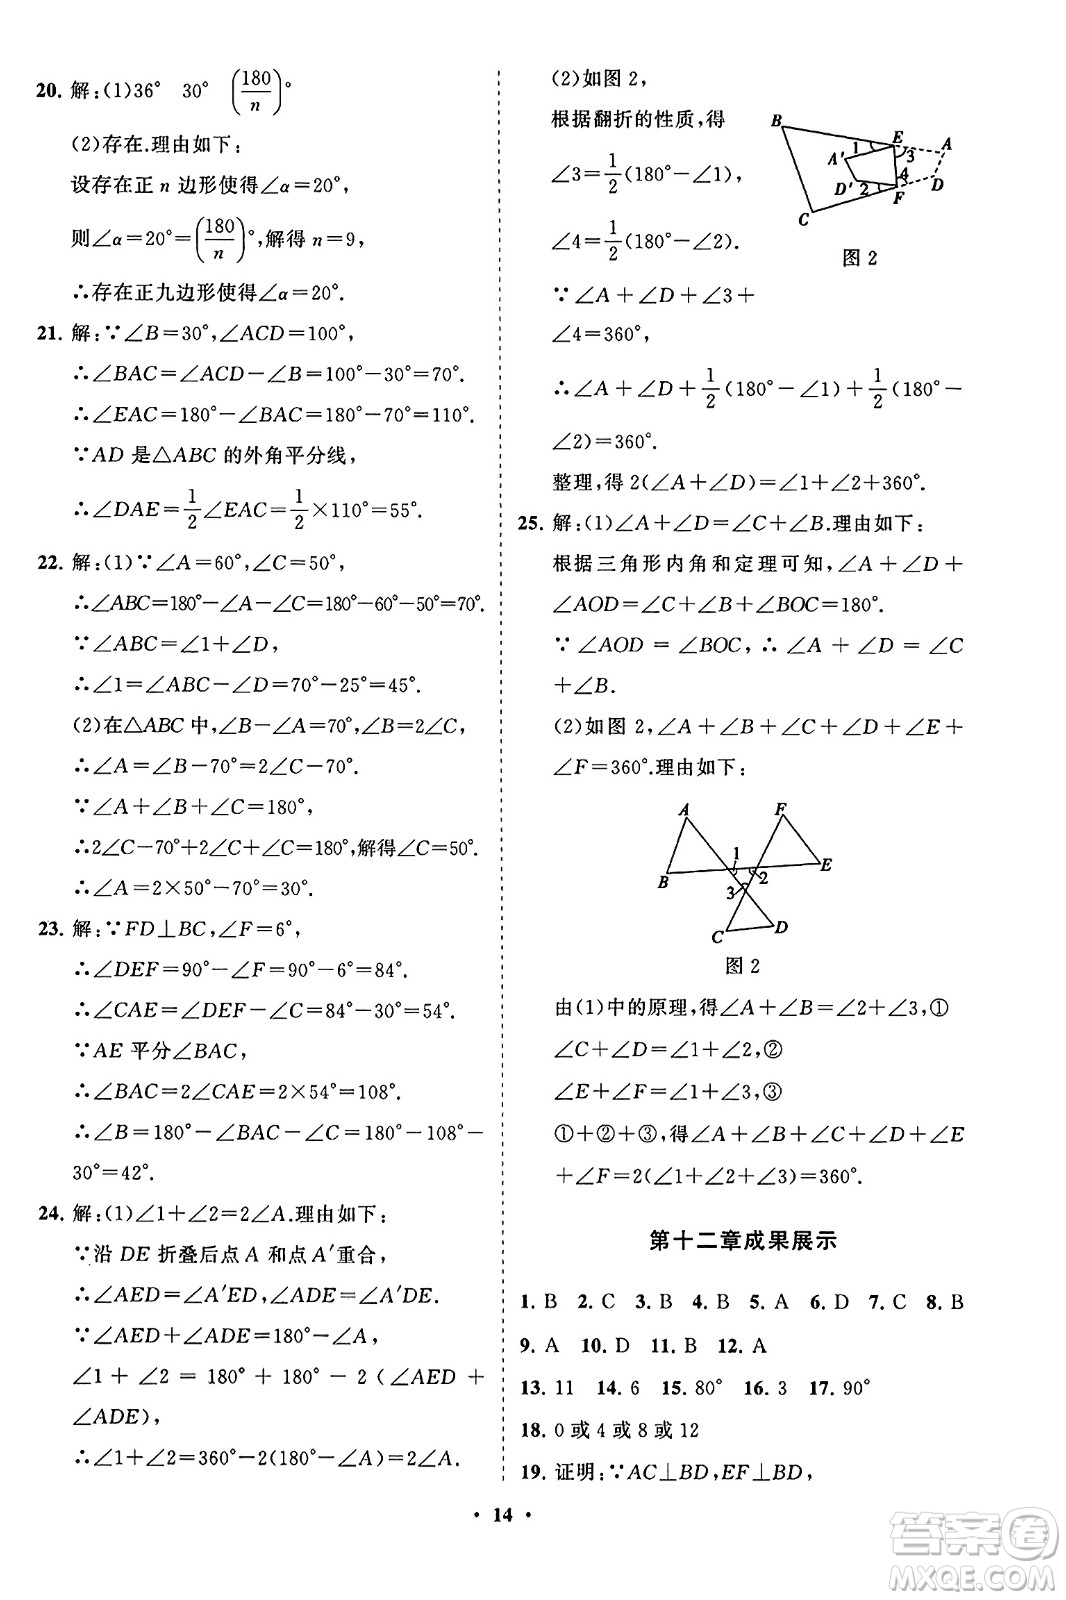 20. 解:(1)36° 30° (180/n)°
(2)存在.理由如下:
设存在正 n 边形使得∠α=20°,
则∠α=20°=(180/n)°,解得 n=9,
∴存在正九边形使得∠α=20°.
21. 解:∵∠B=30°,∠ACD=100°,
∴∠BAC=∠ACD-∠B=100°-30°=70°.
∴∠EAC=180°-∠BAC=180°-70°=110°.
∵AD 是△ABC 的外角平分线,
∴∠DAE=1/2∠EAC=1/2×110°=55°.
22. 解:(1)∵∠A=60°,∠C=50°,
∴∠ABC=180°-∠A-∠C=180°-60°-50°=70°.
∵∠ABC=∠1+∠D,
∴∠1=∠ABC-∠D=70°-25°=45°.
(2)在△ABC 中,∠B-∠A=70°,∠B=2∠C,
∴∠A=∠B-70°=2∠C-70°.
∵∠A+∠B+∠C=180°,
∴2∠C-70°+2∠C+∠C=180°,解得∠C=50°.
∴∠A=2×50°-70°=30°.
23. 解:∵FD⊥BC,∠F=6°,
∴∠DEF=90°-∠F=90°-6°=84°.
∴∠CAE=∠DEF-∠C=84°-30°=54°.
∵AE 平分∠BAC,
∴∠BAC=2∠CAE=2×54°=108°.
∴∠B=180°-∠BAC-∠C=180°-108°-
30°=42°.
24. 解:(1)∠1+∠2=2∠A.理由如下:
∵沿 DE 折叠后点 A 和点 A′重合,
∴∠AED=∠A′ED,∠ADE=∠A′DE.
∵∠AED+∠ADE=180°-∠A,
∠1+∠2=180°+180°-2(∠AED+
∠ADE),
∴∠1+∠2=360°-2(180°-∠A)=2∠A.
(2)如图 2,
根据翻折的性质,得
∠3=1/2(180°-∠1),
∠4=1/2(180°-∠2).
B E A
1 3
A′
D′ 2 4 D
C F
图 2
∵∠A+∠D+∠3+
∠4=360°,
∴∠A+∠D+1/2(180°-∠1)+1/2(180°-
∠2)=360°.
整理,得 2(∠A+∠D)=∠1+∠2+360°.
25. 解:(1)∠A+∠D=∠C+∠B.理由如下:
根据三角形内角和定理可知,∠A+∠D+
∠AOD=∠C+∠B+∠BOC=180°.
∵∠AOD=∠BOC,∴∠A+∠D=∠C
+∠B.
(2)如图 2,∠A+∠B+∠C+∠D+∠E+
∠F=360°.理由如下:
A F
1
B 2 E
3
C D
图 2
由(1)中的原理,得∠A+∠B=∠2+∠3,①
∠C+∠D=∠1+∠2,②
∠E+∠F=∠1+∠3,③
①+②+③,得∠A+∠B+∠C+∠D+∠E
+∠F=2(∠1+∠2+∠3)=360°.
第十二章成果展示
1. B 2. C 3. B 4. B 5. A 6. D 7. C 8. B
9. A 10. D 11. B 12. A
13. 11 14. 6 15. 80° 16. 3 17. 90°
18. 0 或 4 或 8 或 12
19. 证明:∵AC⊥BD,EF⊥BD,
• 14 •
答案圈
MXQE.COM